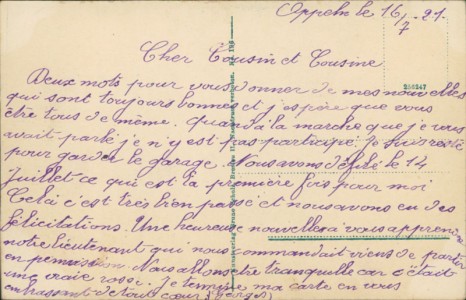 Oppeln le 16/7-21.
Cher Cousin et Cousine
Deux mots pour vous donner de mes nouvelles
qui sont toujours bonnes et j'espère que vous
être tous de même. Quand à la marche que je vous
avait parlé je n'y est pas participé je suis resté
pour garder le garage. Nous avons défilé le 14
Juillet ce qui est la première fois pour moi
Celà c'est très bien passé et nous avons eu des
félicitations. Une heureuse nouvelle à vous apprendre
notre lieutenant qui nous commandait viens de partir
en permission. Nous allons être tranquille car c'était
une vraie rosse. Je termine ma carte en vous
embrassant de tout cœur (Georges)
258247